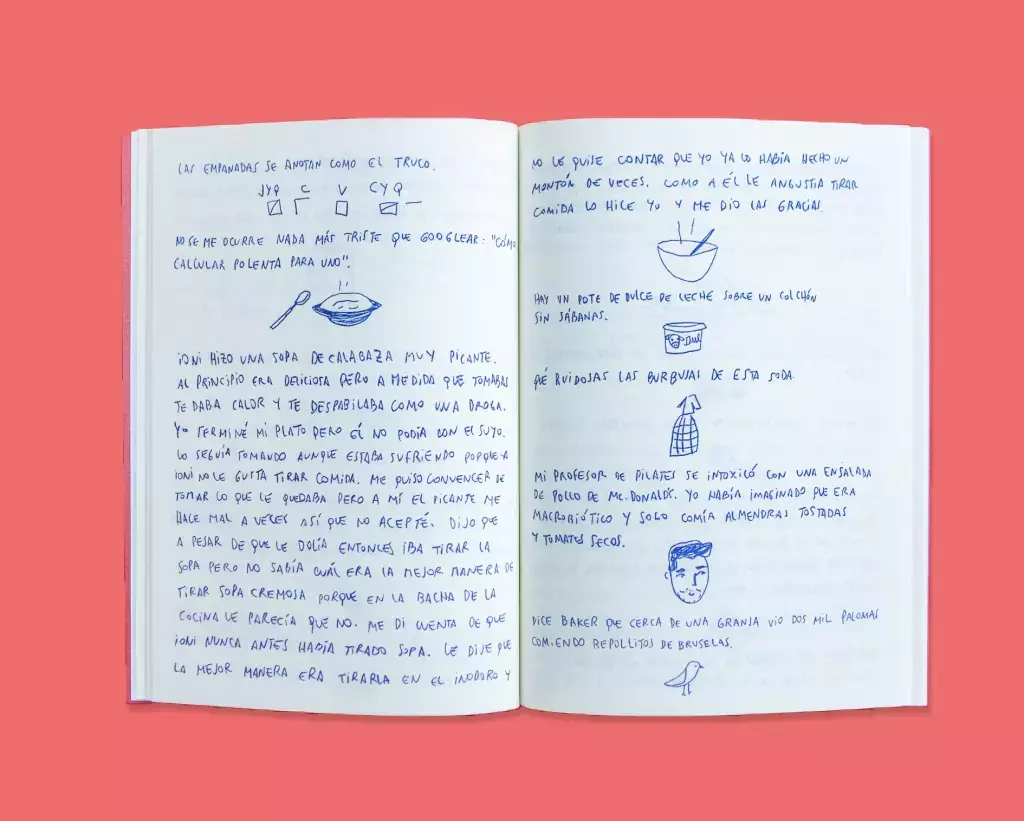 LAS EMPANADAS SE ANOTAN COMO EL TRUCO.
JYQ C V CYQ
NO SE ME OCURRE NADA MÁS TRISTE QUE GOOGLEAR: "CÓMO
CALCULAR POLENTA PARA UNO".
IONI HIZO UNA SOPA DE CALABAZA MUY PICANTE.
AL PRINCIPIO ERA DELICIOSA PERO A MEDIDA QUE TOMABAS
TE DABA CALOR Y TE DESPABILABA COMO UNA DROGA.
YO TERMINÉ MI PLATO PERO ÉL NO PODÍA CON EL SUYO.
LO SEGUÍA TOMANDO AUNQUE ESTABA SUFRIENDO PORQUE A
IONI NO LE GUSTA TIRAR COMIDA. ME QUISO CONVENCER DE
TOMAR LO QUE LE QUEDABA PERO A MÍ EL PICANTE ME
HACE MAL A VECES ASÍ QUE NO ACEPTÉ. DIJO QUE
A PESAR DE QUE LE DOLÍA ENTONCES IBA TIRAR LA
SOPA PERO NO SABÍA CUÁL ERA LA MEJOR MANERA DE
TIRAR SOPA CREMOSA PORQUE EN LA BACHA DE LA
COCINA LE PARECÍA QUE NO. ME DI CUENTA DE QUE
IONI NUNCA ANTES HABÍA TIRADO SOPA. LE DIJE QUE
LA MEJOR MANERA ERA TIRARLA EN EL INODORO Y
NO LE QUISE CONTAR QUE YO YA LO HABÍA HECHO UN
MONTÓN DE VECES. COMO A ÉL LE ANGUSTIA TIRAR
COMIDA LO HICE YO Y ME DIO LAS GRACIAS.
HAY UN POTE DE DULCE DE LECHE SOBRE UN COLCHÓN
SIN SÁBANAS.
QUÉ RUIDOSAS LAS BURBUJAS DE ESTA SODA.
MI PROFESOR DE PILATES SE INTOXICÓ CON UNA ENSALADA
DE POLLO DE MC.DONALD'S. YO HABÍA IMAGINADO QUE ERA
MACROBIÓTICO Y SOLO COMÍA ALMENDRAS TOSTADAS
Y TOMATES SECOS.
DICE BAKER QUE CERCA DE UNA GRANJA VIO DOS MIL PALOMAS
COMIENDO REPOLLITOS DE BRUSELAS.